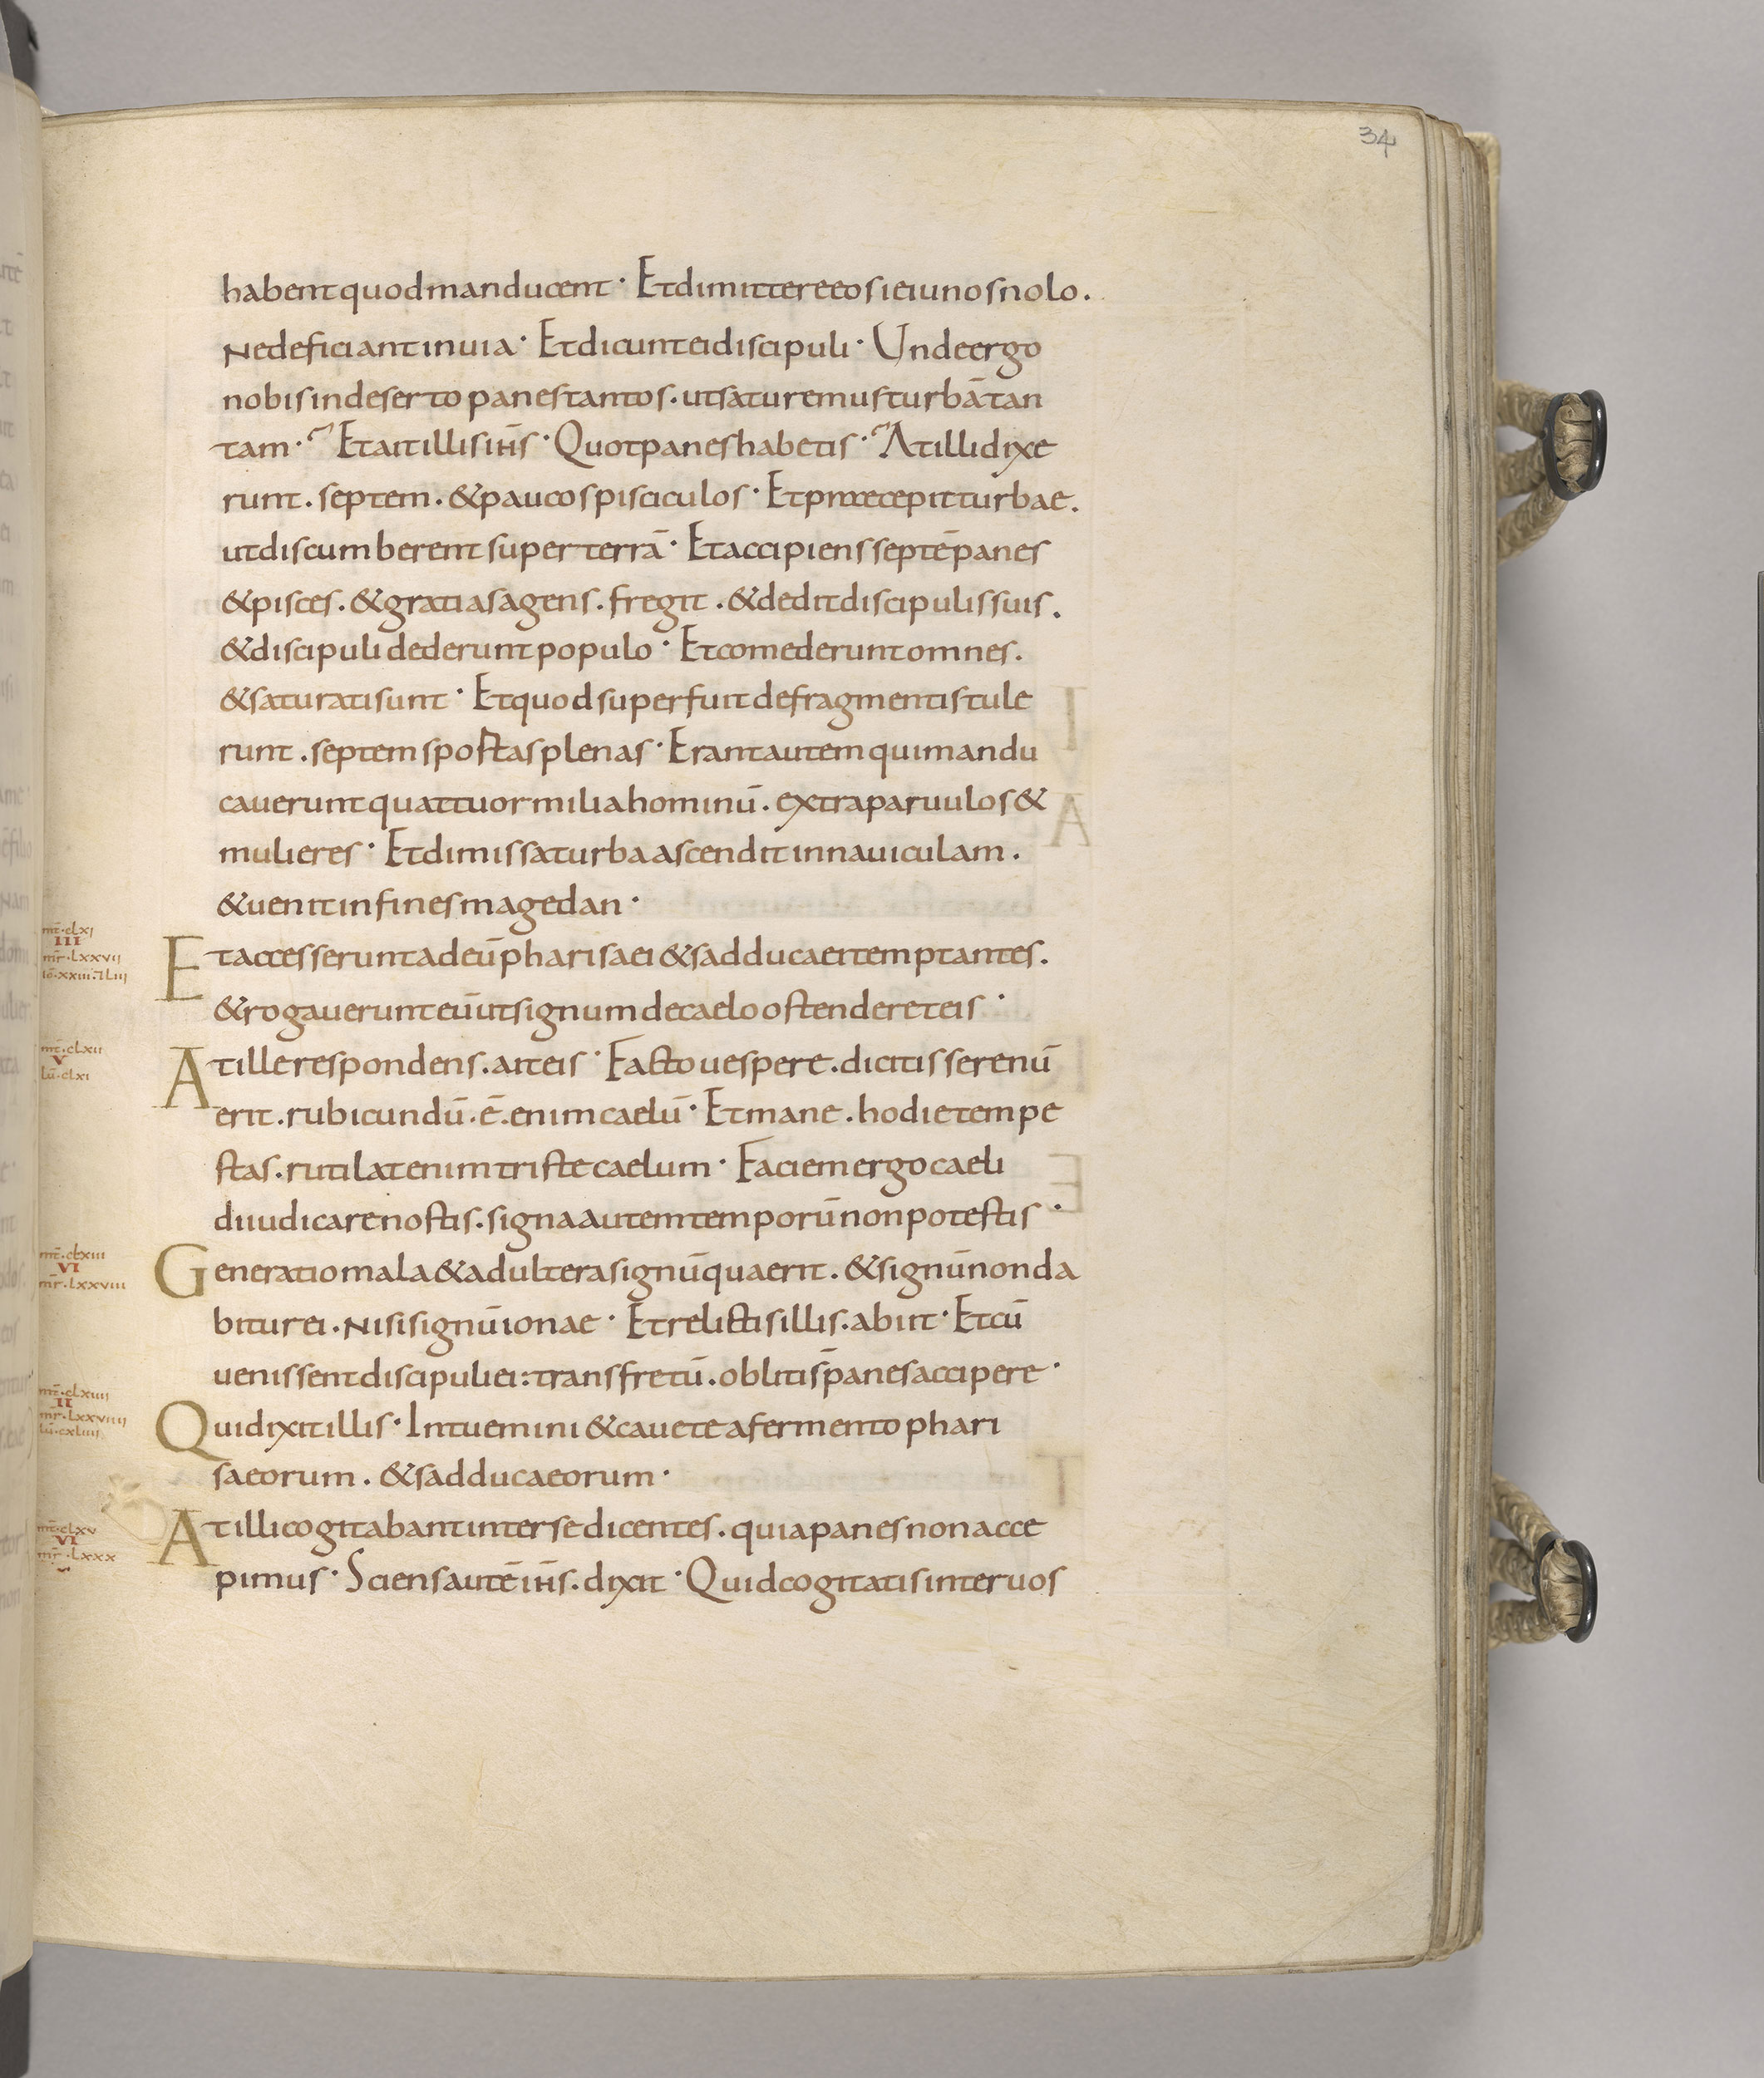 34
habent quod manducent · Et dimittere eos ieiunos nolo .
Ne deficiant in uia · Et dicunt ei discipuli · Unde ergo
nobis in deserto panes tantos . ut saturemus turbā tan
tam · Et ait illis ih̅s · Quot panes habetis · At illi dixe
runt . septem . & paucos pisciculos · Et praecepit turbae .
ut discumberent super terrā · Et accipiens septē panes
& pisces . & gratias agens . fregit . & dedit discipulis suis .
& discipuli dederunt populo · Et comederunt omnes .
& saturati sunt · Et quod superfuit de fragmentis tule
runt . septem sportas plenas · Erant autem qui mandu
cauerunt quattuor milia hominū . extra paruulos &
mulieres · Et dimissa turba ascendit in nauiculam .
& uenit in fines magedan ·
mt̅ · clxi
III
mr̅ · lxxvii
Et accesserunt ad eū pharisaei & sadducaei temptantes .
& rogauerunt eū ut signum de caelo ostenderet eis ·
mt̅ · clxii
V
lu̅ · clxi
At ille respondens . ait eis · Facto uespere . dicitis serenū
erit . rubicundū . ē . enim caelū · Et mane . hodie tempe
stas . rutilat enim triste caelum · Faciem ergo caeli
diiudicare nostis . signa autem temporū non potestis ·
mt̅ · clxiii
VI
mr̅ · lxxviii
Generatio mala & adultera signū quaerit . & signū non da
bitur ei . Nisi signū ionae · Et relictis illis . abiit · Et cū
uenissent discipuli ei : trans fretū . obliti s̅ panes accipere ·
mt̅ · clxiiii
II
mr̅ · lxxviiii
lu̅ · cxliiii
Qui dixit illis · Intuemini & cauete a fermento phari
saeorum . & sadducaeorum ·
mt̅ · clxv
VI
mr̅ · lxxx
At illi cogitabant inter se dicentes . quia panes non acce
pimus · Sciens autē ih̅s . dixit · Quid cogitatis inter uos